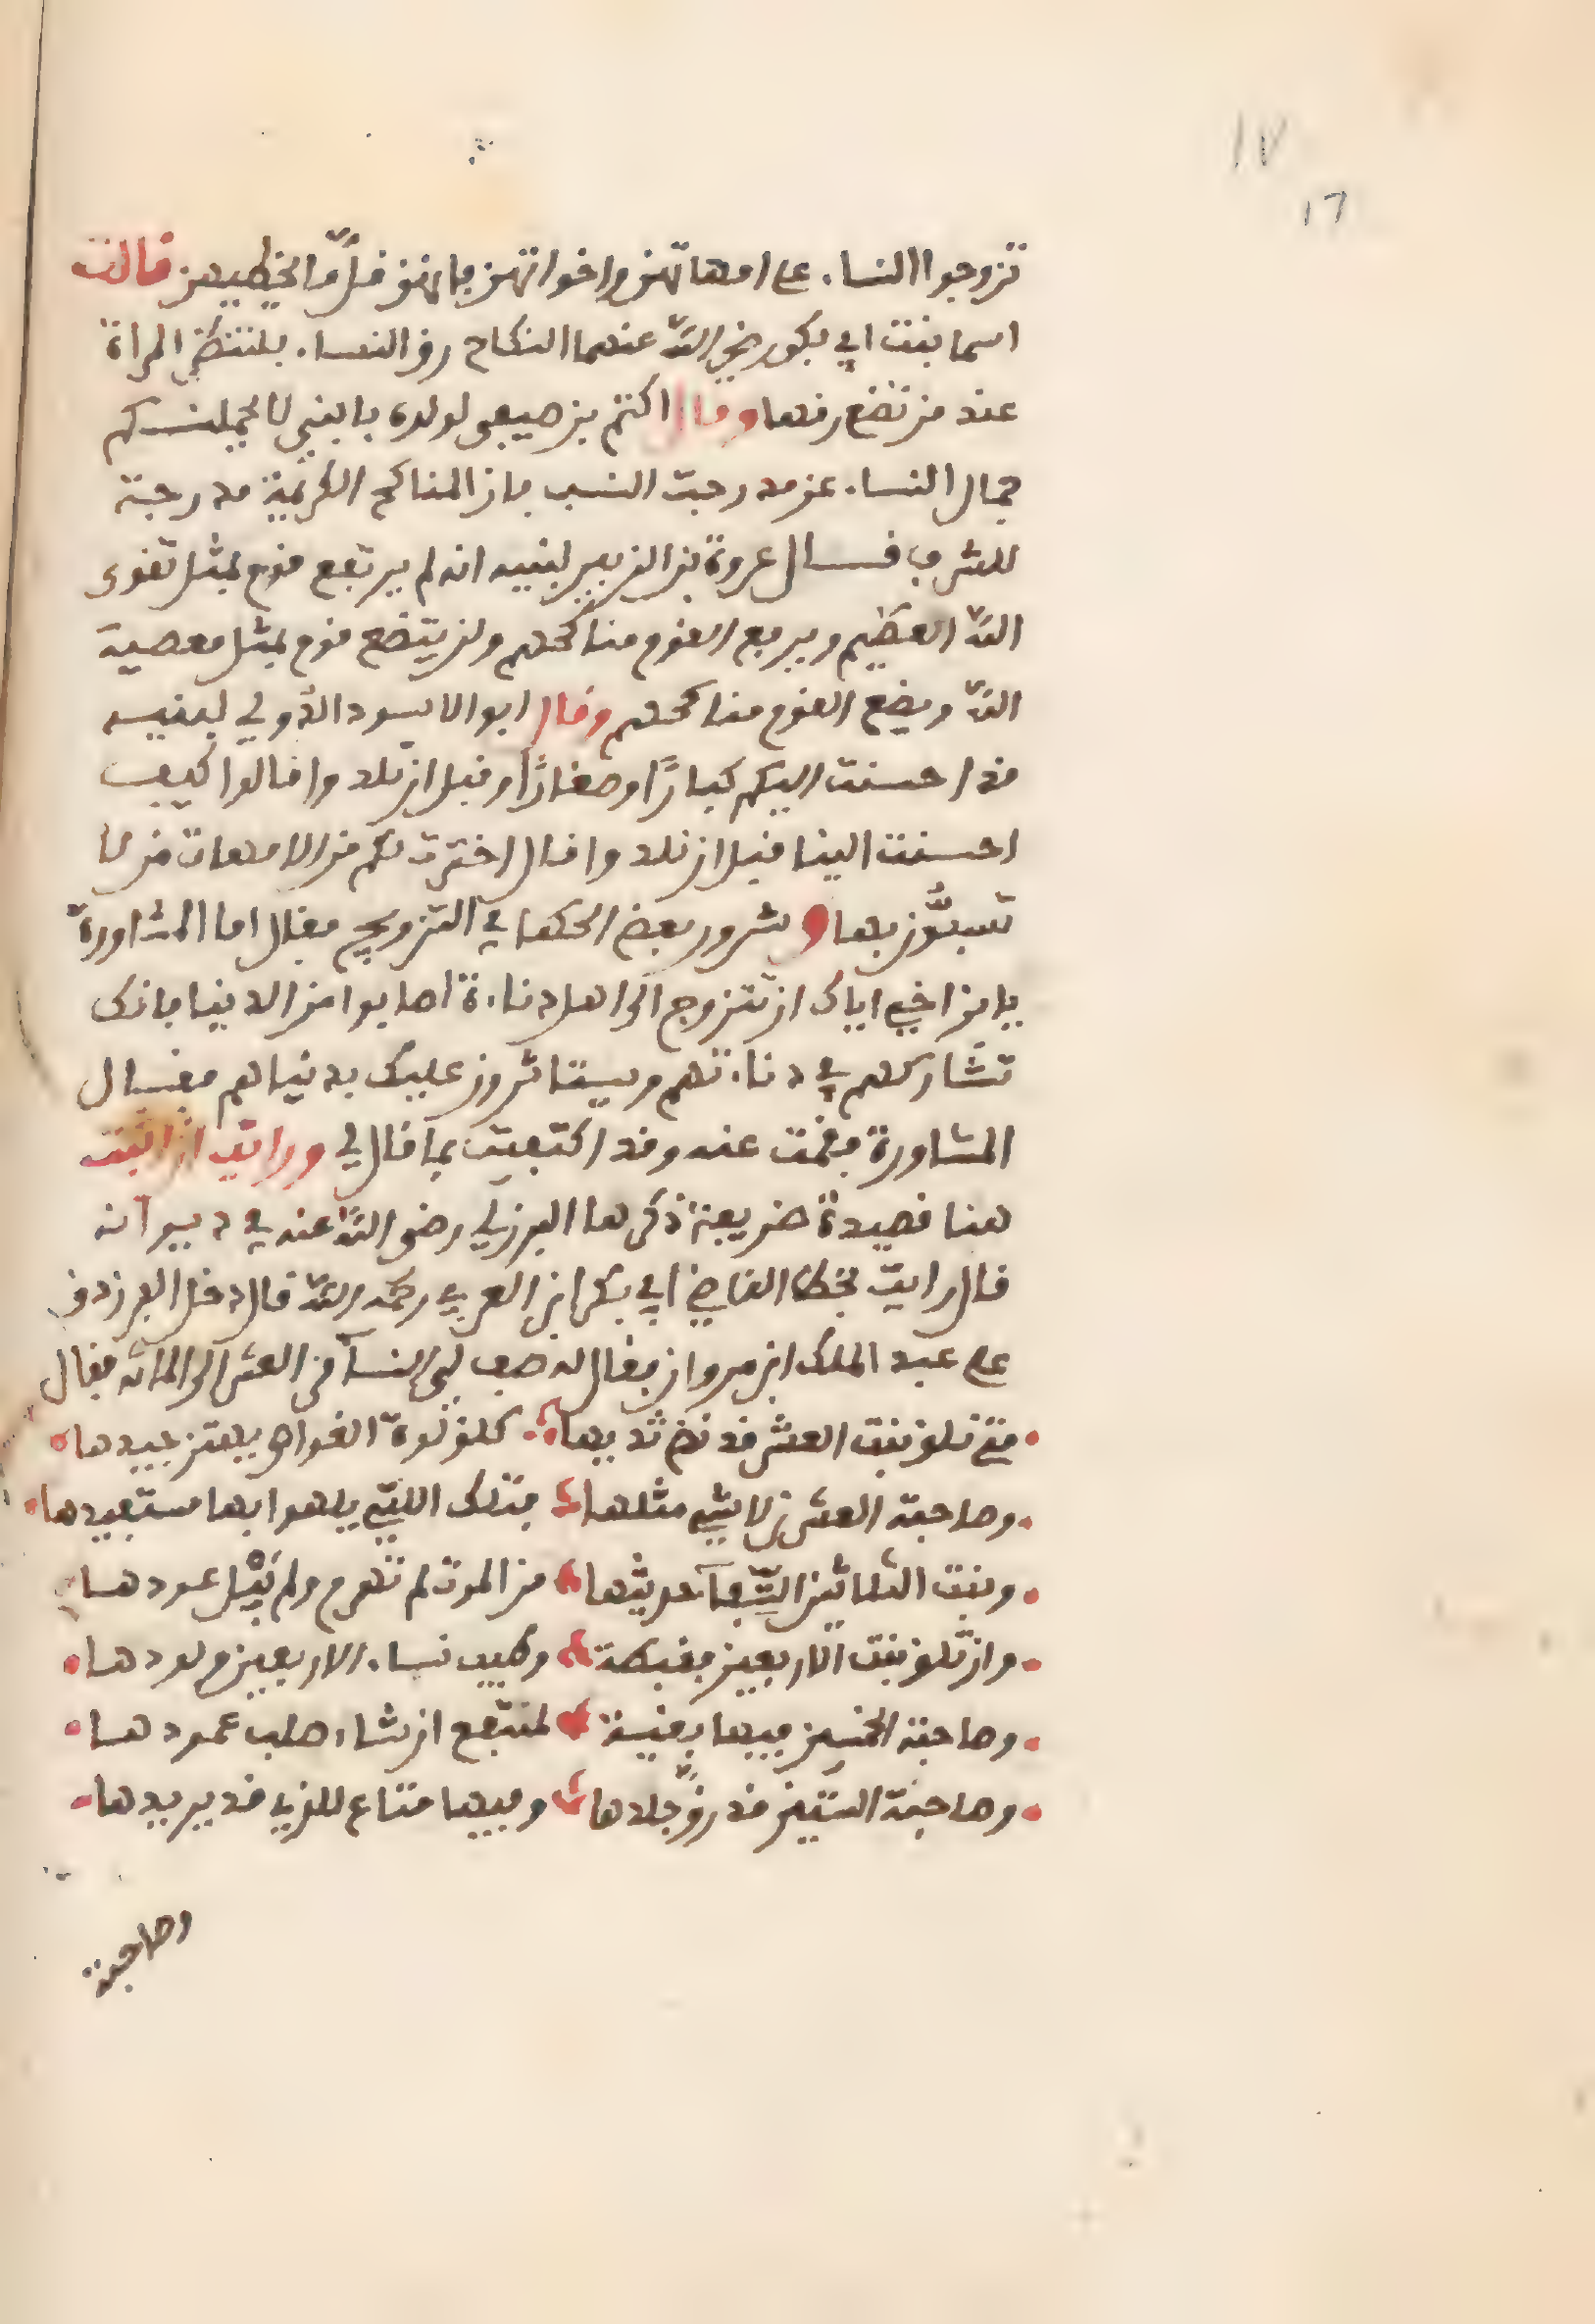 17
١٦
تزوجوا النساء على امهاتهن واخواتهن فانهن قل ما يخطيهن قالت
اسما بنت ابي بكر رضي الله عنهما النكاح رق النساء فلتنظر المراة
عند من تضع رقها وقال اكثم بن صيفي لولده يا بني لا يحملنكم
جمال النساء عن مدرجت النسب فان المناكح الكريمة مدرجة
للشرف قال عروة بن الزبير لبنيه انه لم يرتفع قوم بمثل تقوى
الله العظيم ويرفع القوم مناكحهم ولن يتضع قوم بمثل معصية
الله ويضع القوم مناكحهم وقال ابو الاسود الدؤلي لبنيه
قد احسنت اليكم كبارًا وصغارًا وقبل ان تلدوا قالوا كيف
احسنت الينا قبل ان نلدوا قال اخترت لكم من الامهات من لا
تسبّون بها وشرور بعض الحكما في التزويج فقال اما المشاورة
يا بن اخي اياك ان تتزوج الى اهل دناءة اصابوا من الدنيا فانك
تشاركهم في دناءتهم ويستاثرون عليك بدنياهم فقال
المشاورة فقمت عنه وقد اكتفيت بما قال لي ورايت ان اثبت
هنا قصيدة ضريفة ذكرها البرزلي رضي الله عنه في ديوانه
قال رايت بخط القاضي ابي بكر ابن العربي رحمه الله قال دخل الفرزدق
على عبد الملك ابن مروان فقال له صف لي النسآ من العشر الى المائه فقال
متى تلق بنت العشر قد نض ثديها كلؤلؤة الغواص يهتز جيدها
وصاحبة العشرين لا شي مثلها فتلك التي يلهوا بها مستفيدها
وبنت الثلاثين الشفآ حديثها من الموت لم تهرم ولم يبل عودها
وان تلق بنت الاربعين فغبطة وخير نساء الاربعين ولودها
وصاحبة الخمسين فيها بقية لمنتفع ان شاء صلب عمودها
وصاحبة الستين قد رق جلدها وفيها متاع للذي قد يريدها
وصاحبة